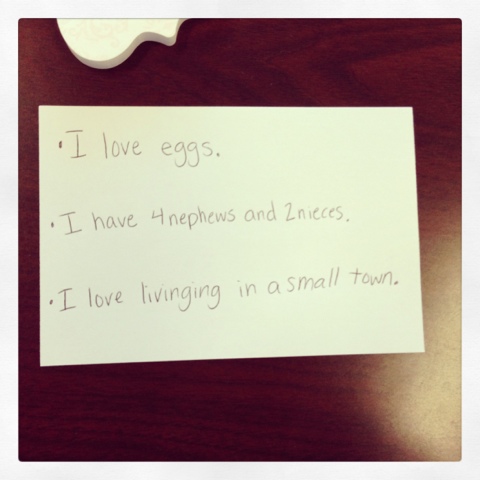 · I love eggs.
· I have 4 nephews and 2 nieces.
· I love livinging in a small town.